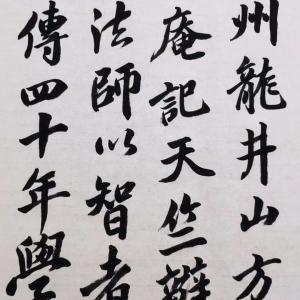 州龍井山方
庵記天竺辯
法師以智者
傳四十年學